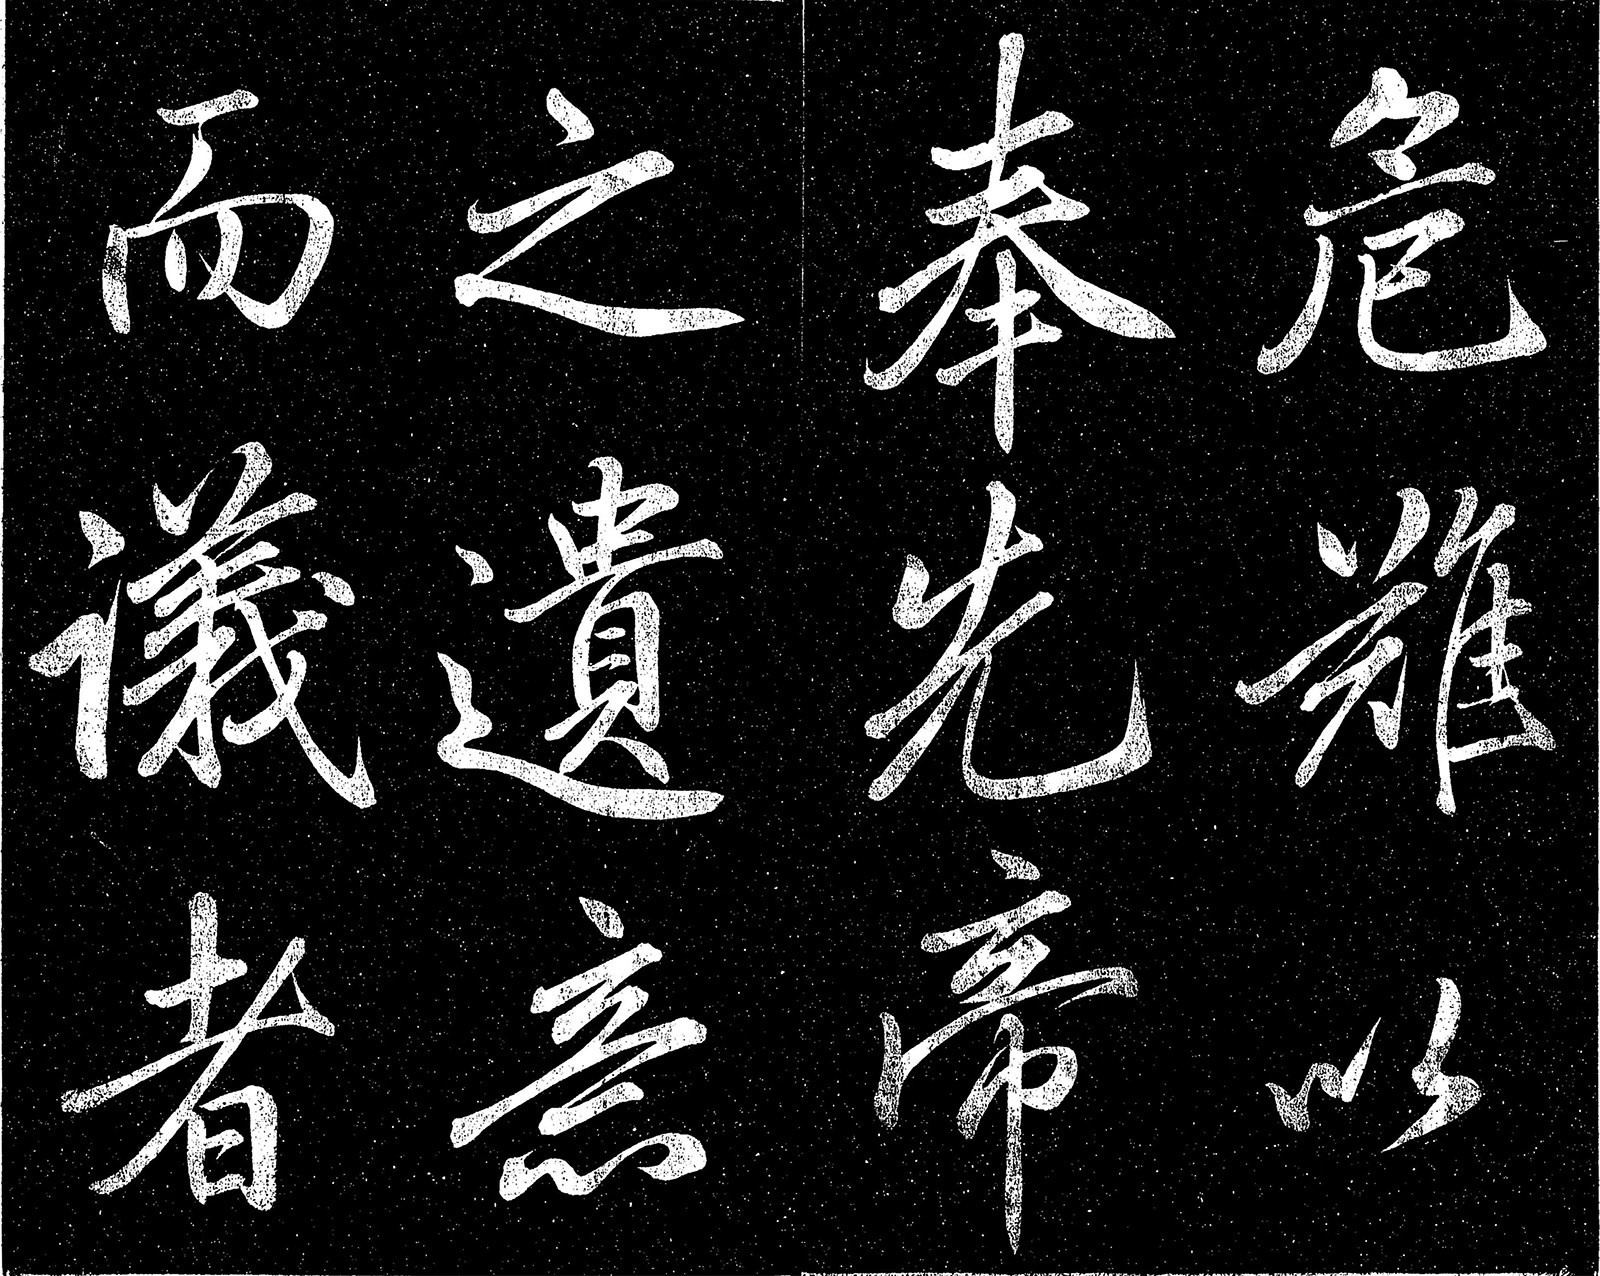 危難以
奉先帝
之遺意
而議者